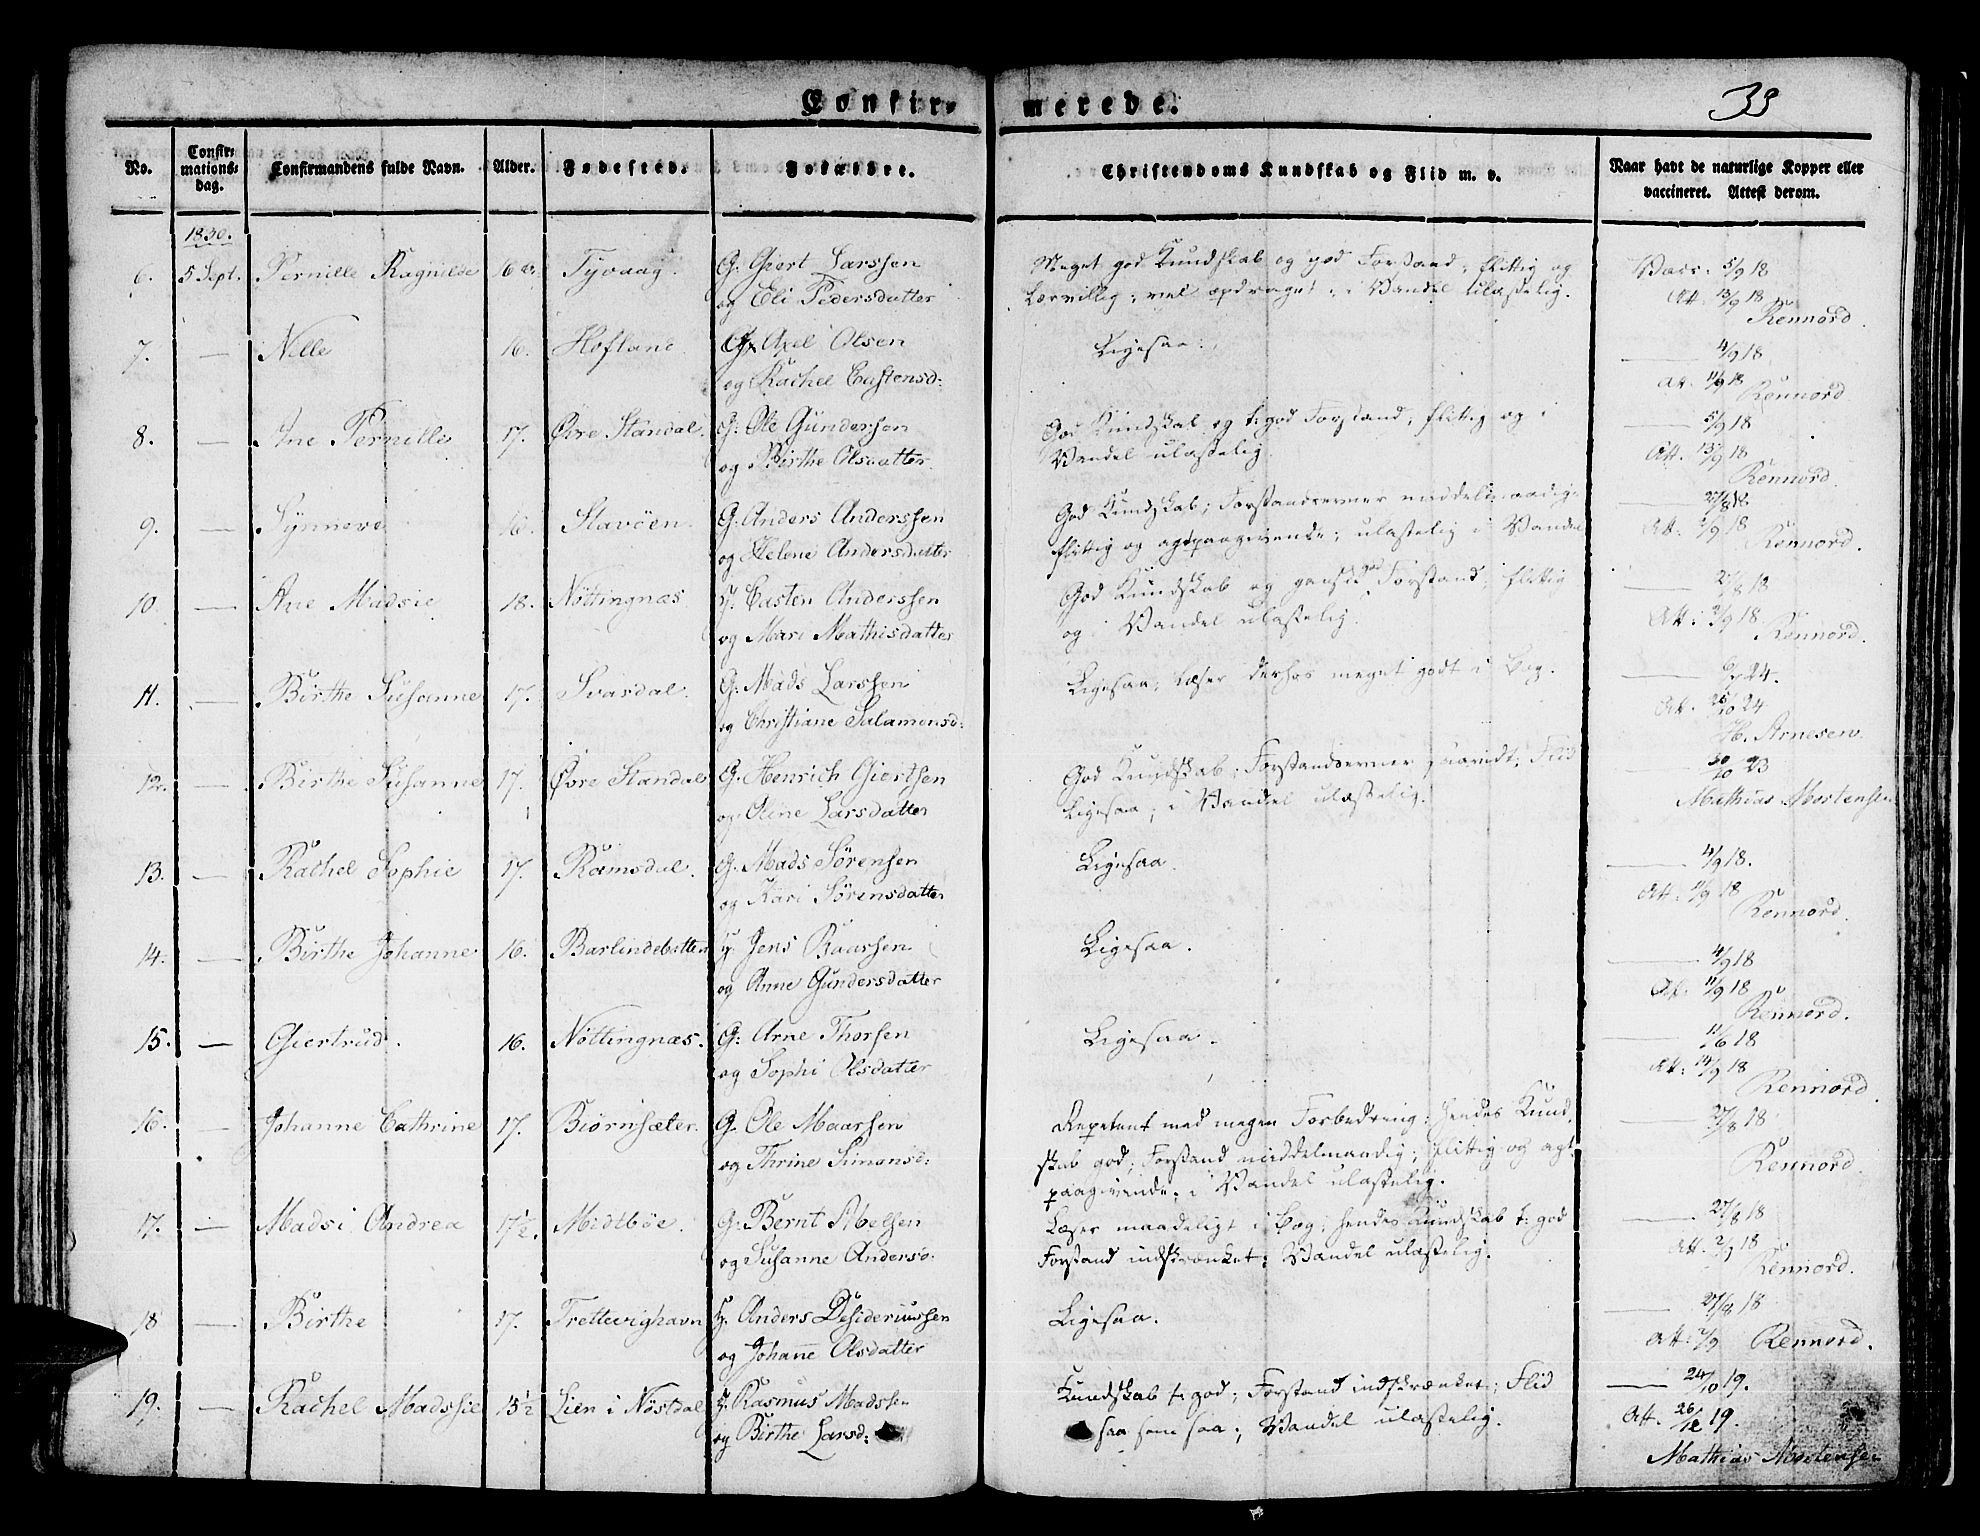 Confir- merede.
33
No.
Confir-
mations-
dag.
Confirmandens fulde Navn.
Alder.
Fødested.
Forældre.
Christendoms Kundskab og Flid m. v.
Naar havt de naturlige Kopper eller
vaccineret. Attest derom.
1830.
6. 5 Sept. Pernille Ragnilde 16 Tyvaag. G. Giert Larssen
og Eli Pedersdatter
Meget god Kundskab og god Forstand; flittig og
Lærvillig; vel opdraget; i Vandel ulastelig.
Vacc. 5/9 18
Att. 13/9 18
Rennord.
7. — Nille 16. Hofland Axel Olsen
og Rachel Castensd:
Ligesaa.
— 4/9 18
At. 11/9 18
Rennord.
8. — Ane Pernille 17. Øvre Standal. G: Ole Gundersen
og Birthe Olsdatter.
God Kundskab og t. god Forstand; flittig og i
Vandel ulastelig.
— 5/9 18
Att. 13/9 18
Rennord.
9. — Synneve 16. Stavöen. G. Anders Anderssen
og Helene Andersdatter
God Kundskab; Forstandsevner middelmaadig;
flittig og agtpaagivende; ulastelig i Vandel
— 27/8 18
Att. 2/9 18
Rennord.
10. — Ane Madsie 18. Nöttingnæs. Casten Anderssen
og Mari Mathisdatter
God Kundskab og ganske god Forstand; flittig
og i Vandel ulastelig.
— 27/8 18
Att: 2/9 18
Rennord.
11. — Birthe Susanne 17. Svardal. G: Mads Larssen
og Christiane Salamonsd:
Ligesaa; Læser derhos meget godt i Bog.
— 24.
Att. 24
H. Arnesen.
12. — Birthe Susanne 17. Øvre Standal G. Henrich Giertsen
og Oline Larsdatter
God Kundskab; Forstandsevner Flid
Ligesaa; i Vandel ulastelig.
— 23
Mathias Mortensen
13. — Rachel Sophie 17. Ramsdal. G. Mads Sörensen
og Kari Sörensdatter
Ligesaa.
— 4/9 18.
Att. 11/9 18
Rennord.
14. — Birthe Johanne 16. Barlindebotten Jens Raarsen
og Anne Gundersdatter
Ligesaa.
— 4/9 18
At. 11/9 18
Rennord.
15. — Giertrud. 16. Nöttingnæs. G: Arne Thorsen
og Sophi Olsdatter
Ligesaa.
— 6 18
Att: 14/9 18
Rennord
16. — Johanne Cathrine 17. Biörnsæter. G. Ole Maarsen
og Thrine Simonsd:
Repetent med megen Forbedring; hendes Kund-
skab god; Forstand middelmaadig; flittig og agt-
paagivende; i Vandel ulastelig.
— 27/8 18
Rennord.
17. — Madsi Andrea 17½. Midtböe. G: Bernt Abelsen
og Susanne Andersd.
Læser maadeligt i Bog; hendes Kundskab t: god
Forstand indskrænket; Vandel ulastelig.
— 27/8 18
Att. 2/9 18
Rennord.
18 — Birthe 17. Trettevighavn Anders Desideriussen
og Johane Olsdatter
Ligesaa.
— 27/8 18
Att: 2/9 Rennord.
19. — Rachel Madssie 15½ Lien i Nöstdal Rasmus Madssen
og Birthe Larsd:
Kundskab t. god; Forstand indskrænket; Flid
saa som saa; Vandel ulastelig.
— 24/10 19.
Att. 26/12 19.
Mathias Mortensen